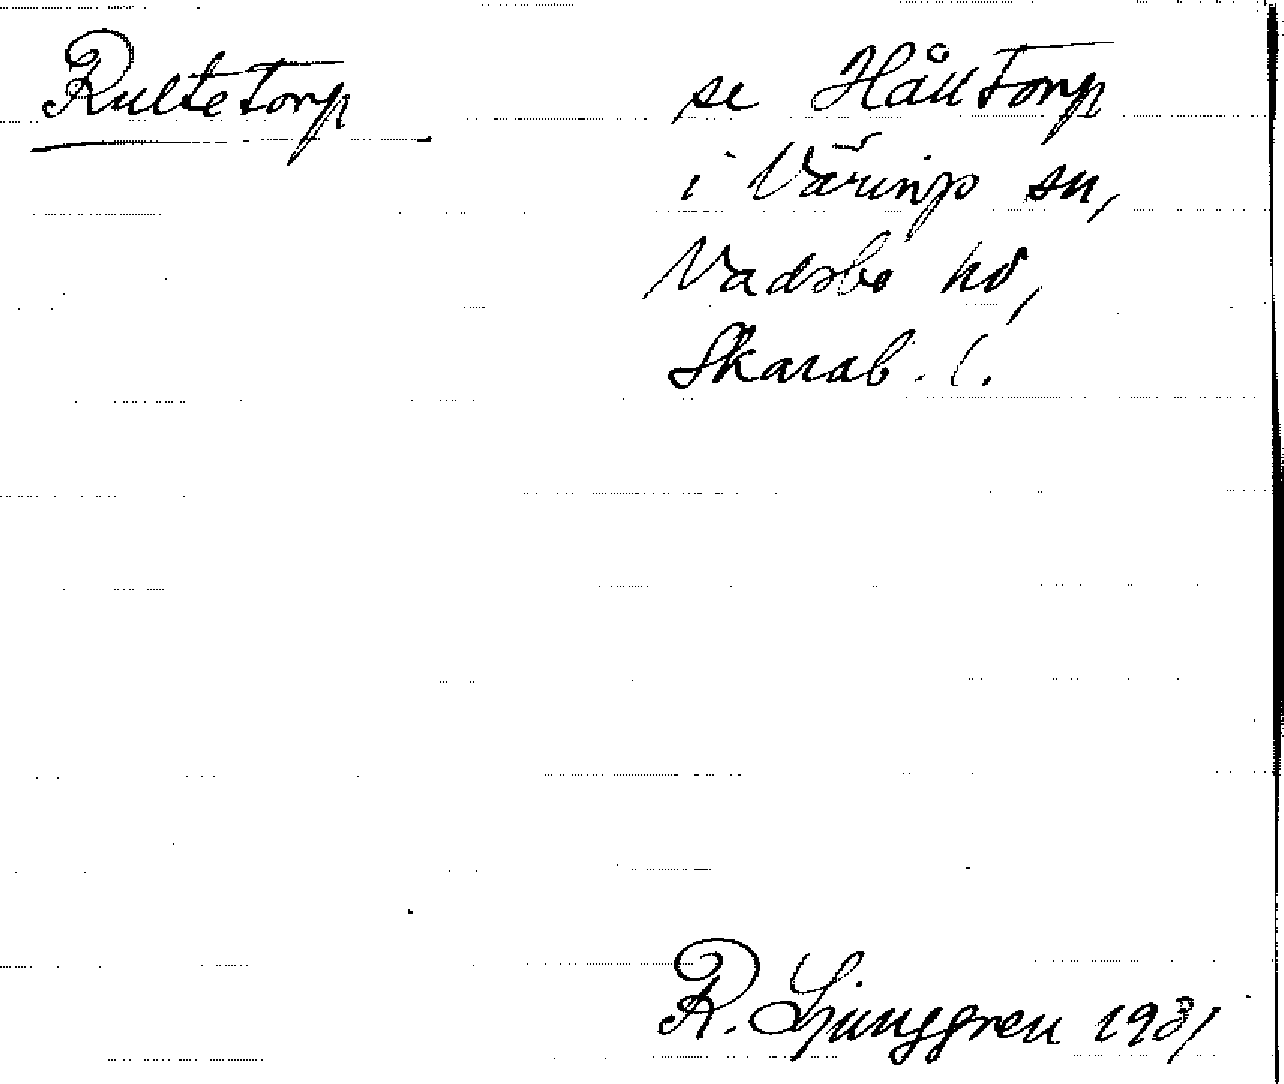 Rultetorp
se Håktorp
i Värings sn,
Vadsbo hd,
Skarab. l.
R. Ljunggren 1931